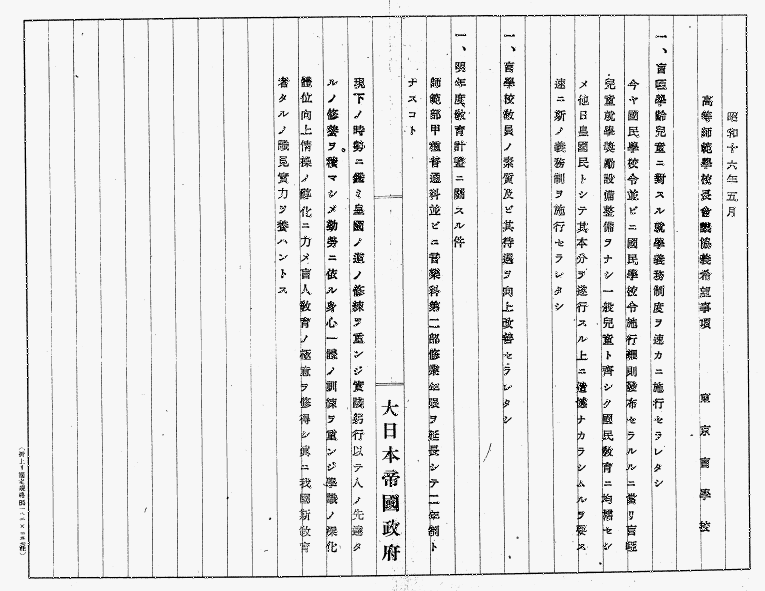 昭和十六年五月
高等師範學校長會議協議希望事項　　東京盲學校
一、盲啞學齡兒童ニ對スル就學義務制度ヲ速カニ施行セラレタシ
今ヤ國民學校令並ビニ國民學校令施行細則發布セラルルニ當リ盲啞
兒童就學奬勵設備整備ヲナシ一般兒童ト齊シク國民敎育ニ均霑セシ
メ他日皇國民トシテ其本分ヲ遂行スル上ニ遺憾ナカラシムルヲ要ス
速ニ新ノ義務制ヲ施行セラレタシ
一、盲學校敎員ノ素質及ビ其待遇ヲ向上改善セラレタシ
一、明年度敎育計畫ニ關スル件
師範部甲種普通科並ビニ音樂科第二部修業年限ヲ延長シテ二年制ト
ナスコト
大日本帝國政府
現下ノ時勢ニ鑑ミ皇國ノ道ノ修練ヲ重ンジ實踐躬行以テ人ノ先達タ
ルノ修養ヲ積マシメ勤勞ニ依ル身心一體ノ訓練ヲ重ンジ學識ノ深化
體位向上情操ノ醇化ニ力メ盲人敎育ノ極意ヲ修得シ眞ニ我國新敎育
者タルノ識見實力ヲ養ハントス